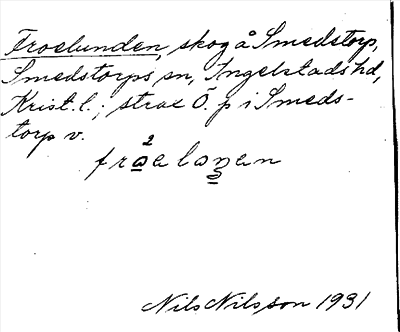 Froelunden, skog å Smedstorp,
Smedstorps sn, Ingelstads hd,
Krist. l.; strax Ö. p i Smeds-
torp v.
2
froelonen
Nils Nilsson 1931